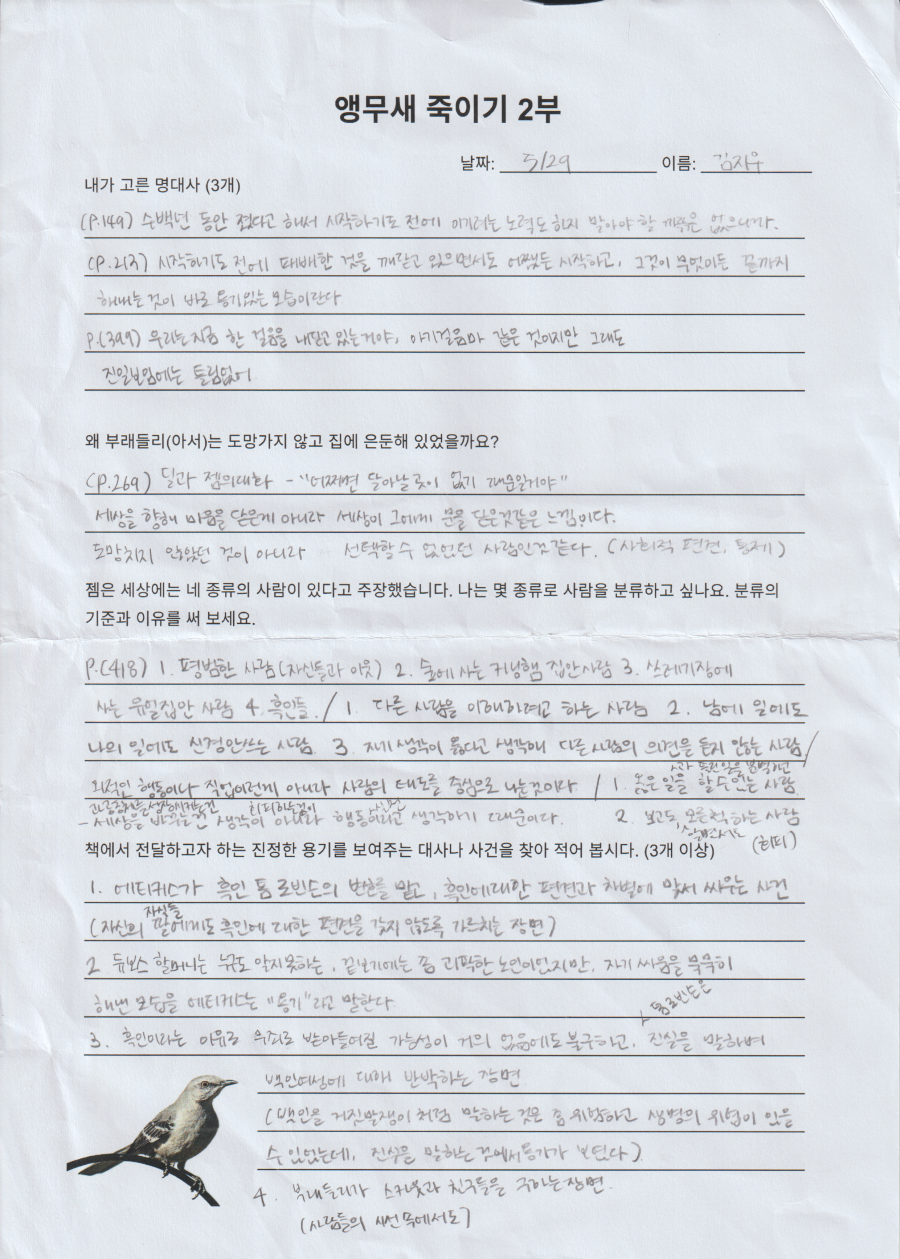 앵무새 죽이기 2부
날짜: 5/29 이름: 김지우
내가 고른 명대사 (3개)
(P.149) 수백년 동안 졌다고 해서 시작하기도 전에 이기려는 노력도 하지 말아야 할 까닭은 없으니까.
(P.213) 시작하기도 전에 패배한 것을 깨닫고 있으면서도 어쨌든 시작하고, 그것이 무엇이든 끝까지
해내는 것이 바로 용기있는 모습이란다
P.(399) 우리는 지금 한 걸음을 내딛고 있는거야, 아기걸음마 같은 것이지만 그래도
진일보임에는 틀림없어
왜 부래들리(아서)는 도망가지 않고 집에 은둔해 있었을까요?
(P.269) 딜과 젬의대화 - "어쩌면 달아날 곳이 없기 때문일거야"
세상을 향해 마음을 닫은게 아니라 세상이 그에게 문을 닫은것같은 느낌이다.
도망치지 않았던 것이 아니라 선택할 수 없었던 사람인것같다. (사회적 편견, 통제)
젬은 세상에는 네 종류의 사람이 있다고 주장했습니다. 나는 몇 종류로 사람을 분류하고 싶나요. 분류의
기준과 이유를 써 보세요.
P.(418) 1. 평범한 사람(자신들과 이웃) 2. 숲에 사는 커닝햄 집안사람 3. 쓰레기장에
사는 유얼집안 사람 4. 흑인들. / 1. 다른 사람을 이해하려고 하는 사람 2. 남에 일에도
나의 일에도 신경안쓰는 사람 3. 자기 생각이 옳다고 생각해 다른사람의 의견을 듣지 않는 사람/
외적인 행동이나 직업이런게 아니라 사람의 태도를 중심으로 나눈것이다 / 1. 옳은 일을 할 수 있는 사람
- 세상을 바꾸는건 생각이 아니라 행동이라고 생각하기 때문이다. 2. 보고도 모른척 하는 사람
알면서도 (회피)
책에서 전달하고자 하는 진정한 용기를 보여주는 대사나 사건을 찾아 적어 봅시다. (3개 이상)
1. 에티커스가 흑인 톰 로빈슨의 변호를 맡고, 흑인에대한 편견과 차별에 맞서 싸우는 사건
자식들
(자신의 딸에게도 흑인에 대한 편견을 갖지 않도록 가르치는 장면)
2 듀보스 할머니는 누구도 알지못하는, 겉보기에는 좀 괴팍한 노인이었지만, 자기 싸움을 묵묵히
해낸 모습을 에티커스는 "용기"라고 말한다.
톰로빈슨은
3. 흑인이라는 이유로 유죄로 받아들여질 가능성이 거의 없음에도 불구하고, 진실을 말하며
백인여성에 대해 반박하는 장면
(백인을 거짓말쟁이처럼 말하는 것은 좀 위험하고 생명의 위협이 있을
수 있었는데, 진실을 말하는 것에서 용기가 보였다)
4. 부래들리가 스카웃과 친구들을 구하는 장면.
(사람들의 시선 속에서도)